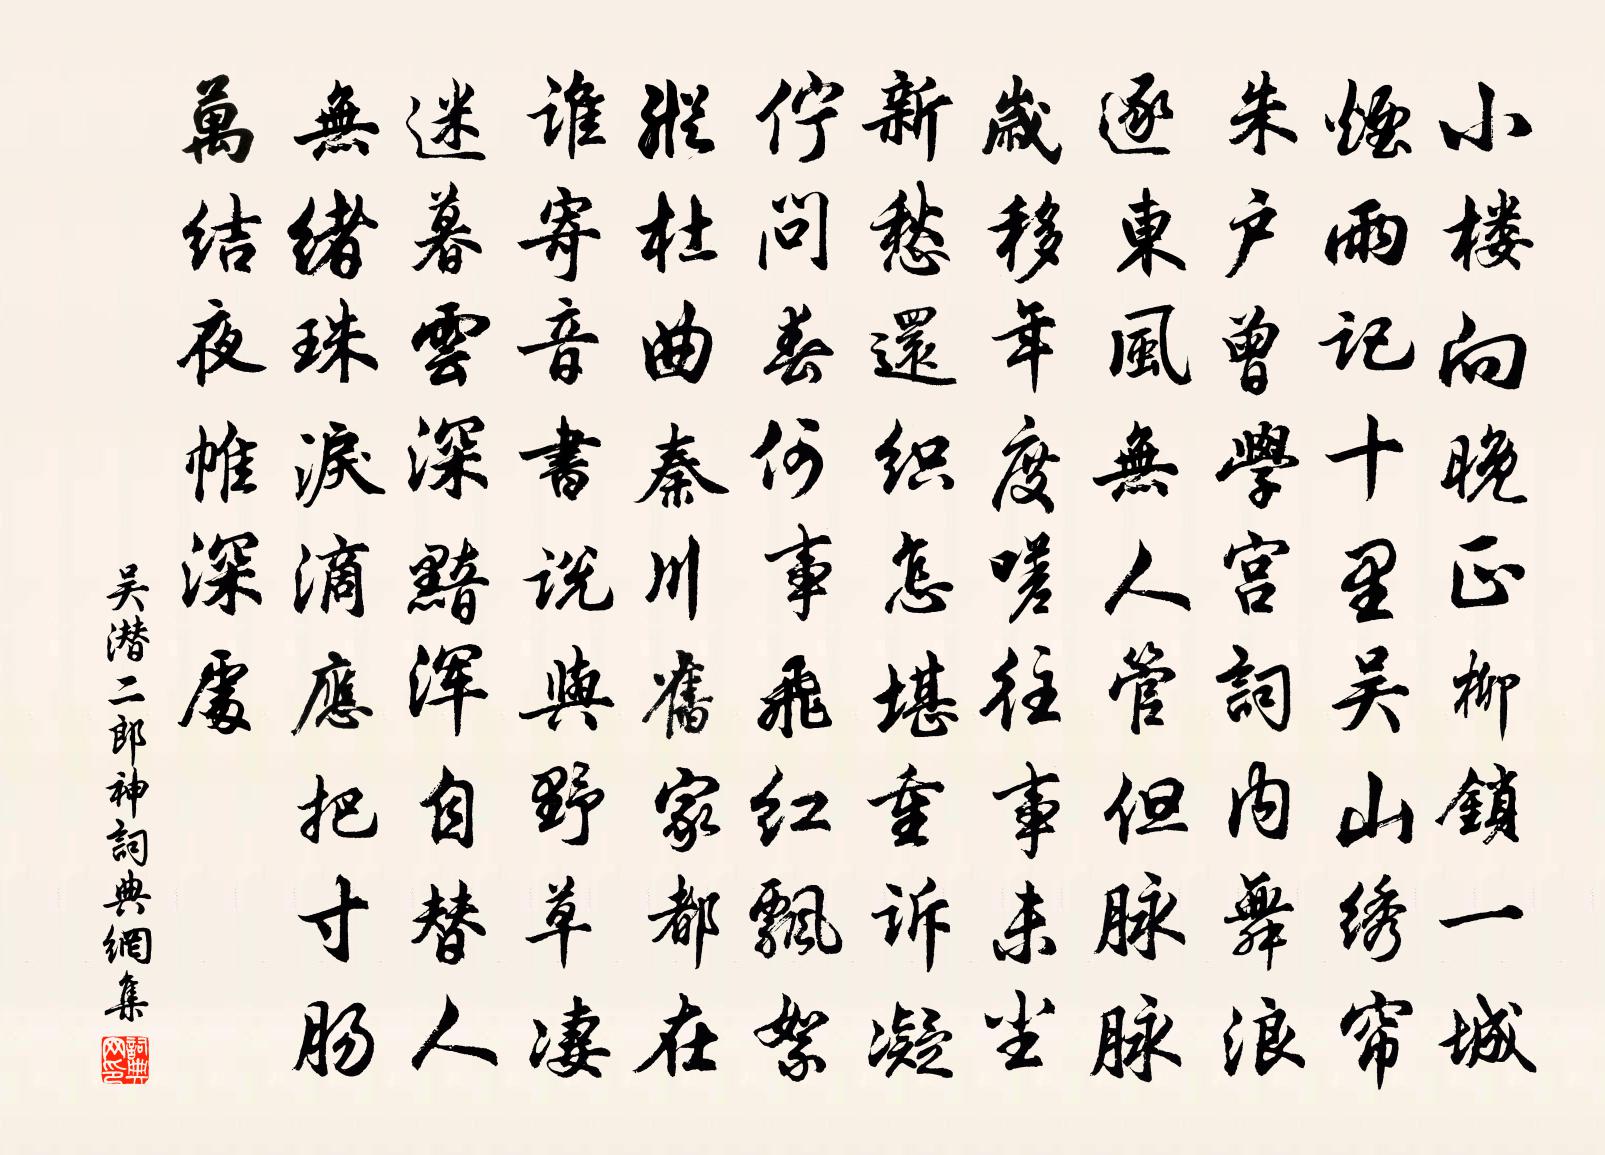 小楼向晚正柳鎖一城
煙雨記十里吴山绣帘
朱户曾學宫詞内舞浪
逐東風無人管但脉脉
歲移年度嗟往事未尘
新愁還织怎堪重诉凝
佇问春何事飛红飄絮
縱杜曲秦川舊家都在
谁寄音書说與野草凄
迷暮雲深黯浑自替人
無绪珠淚滴應把寸肠
萬结夜帷深處
吴潜二郎神詞典網集
詞典网印